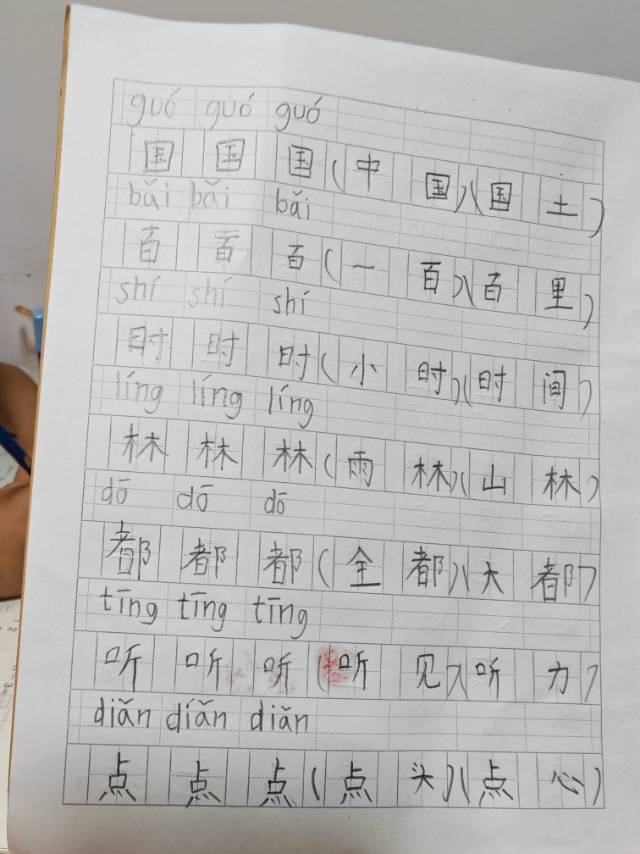 guó guó guó
国 国 国 ( 中 国 ) ( 国 土 )
bǎi bǎi bǎi
百 百 百 ( 一 百 ) ( 百 里 )
shí shí shí
时 时 时 ( 小 时 ) ( 时 间 )
líng líng líng
林 林 林 ( 雨 林 ) ( 山 林 )
dō dō dō
都 都 都 ( 全 都 ) ( 大 都 )
tīng tīng tīng
听 听 听 ( 听 见 ) ( 听 力 )
diǎn diǎn diǎn
点 点 点 ( 点 头 ) ( 点 心 )